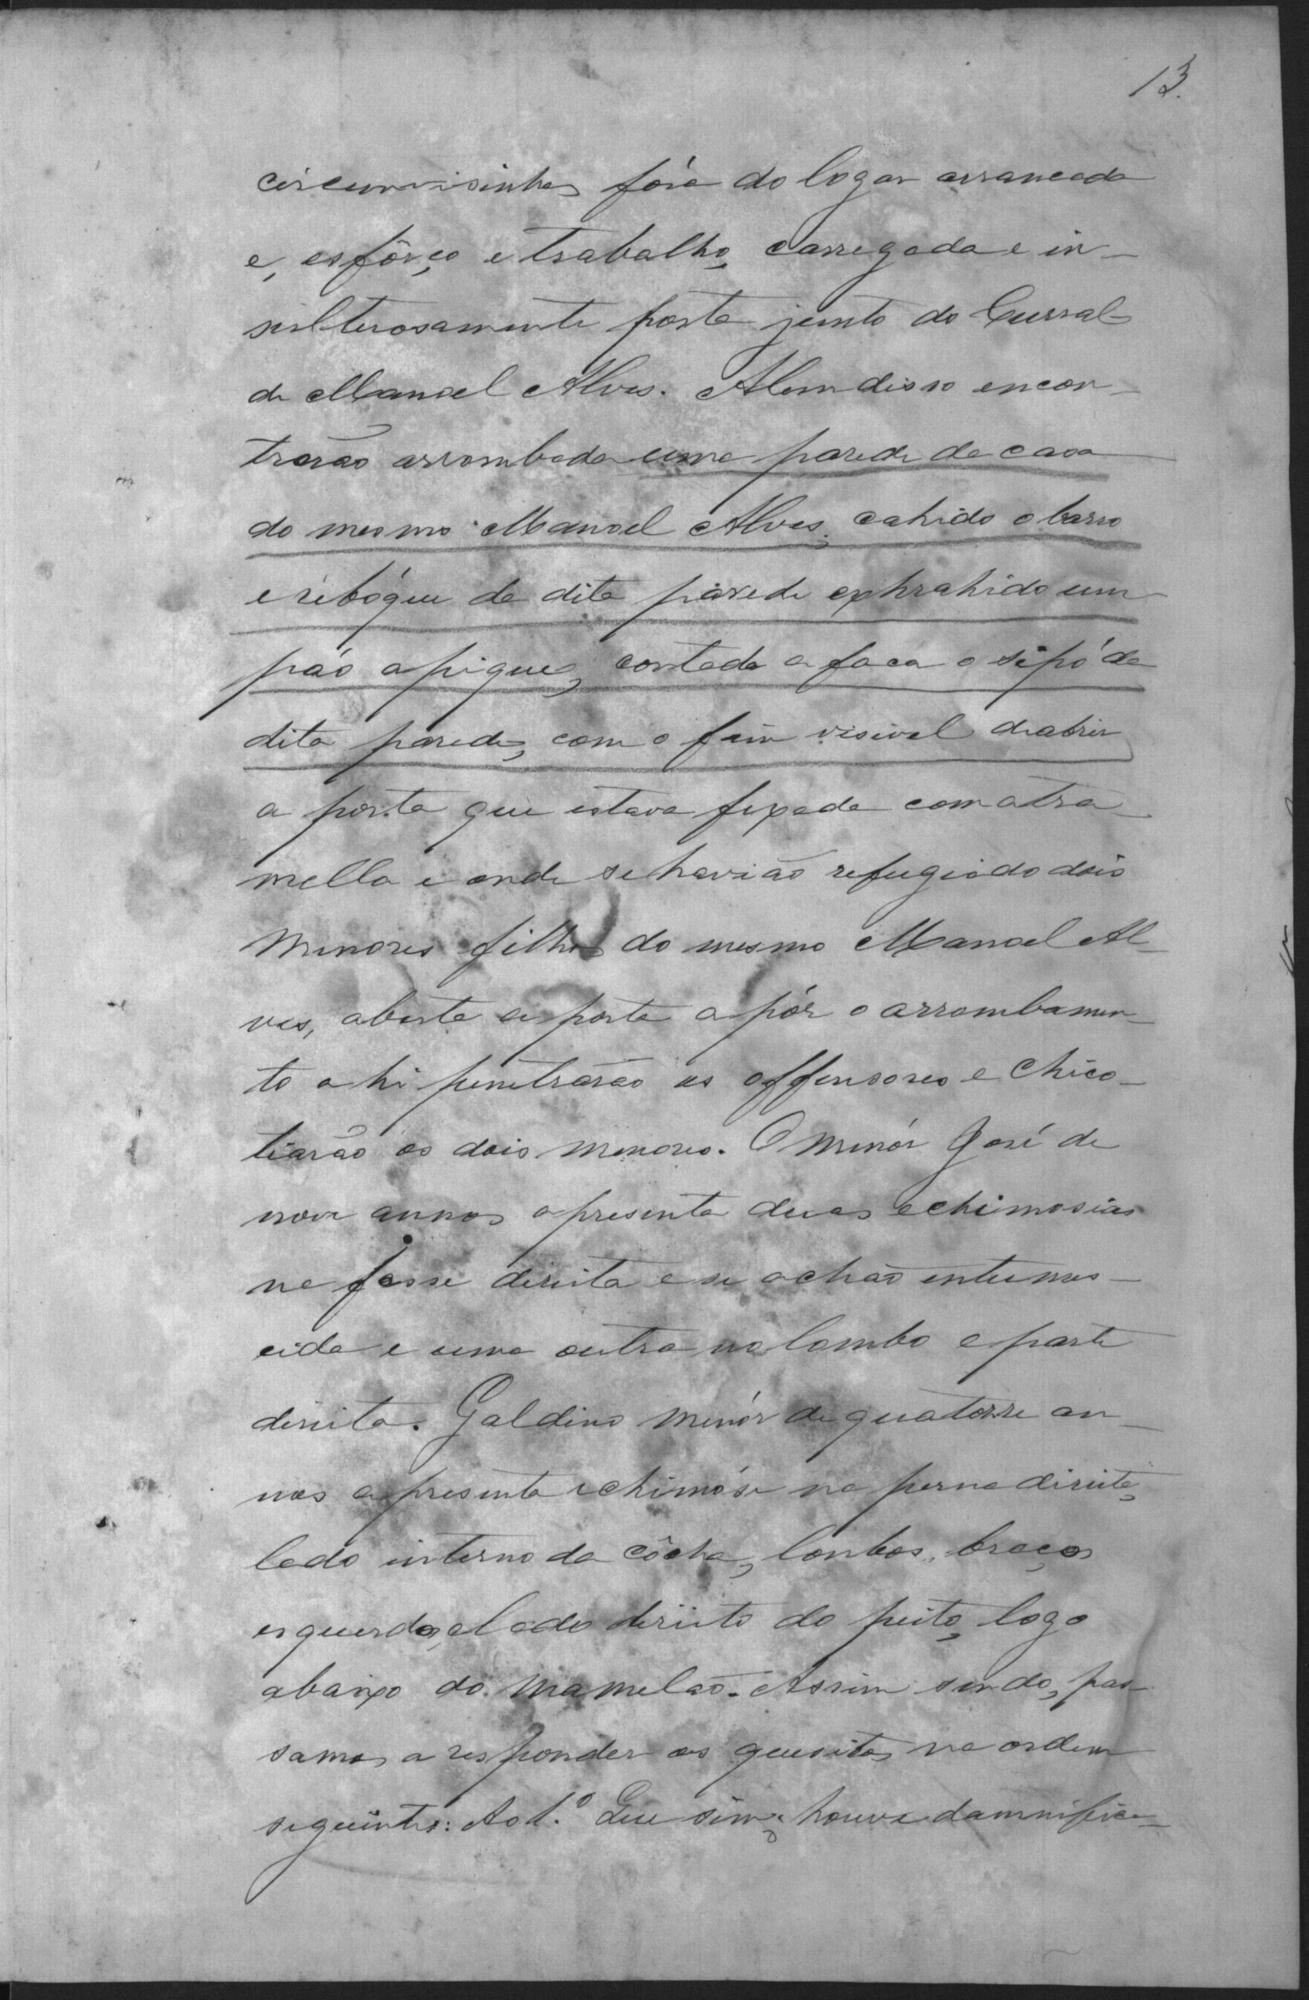 13.
circumvisinhos, fóra do logar arrancada
e, esfôrço e trabalho, carregada e in-
sulterosamente posta junto do Curral
de Manoel Alves. Alem disso encon-
trarão arrombada uma parede da casa
do mesmo Manoel Alves, cahido o barro
e rebóque da dita parede exphrahido um
páo a pique, cortada a faca o sipó da
dita parede, com o fim visivel de abrir
a porta que estava fexada com a tra-
mella e onde se havião refugiado dois
menores filhos do mesmo Manoel Al-
ves, aberta a porta apóz o arrombamen-
to ahi penetrarão os offensores e chico-
tiarão os dois menores. O menór José de
nove annos apresenta duas echimosias
na fasse direita e se achão entumes-
cida e uma outra no lombo e parte
direita. Galdino menór de quatorze an-
nos apresenta echimóse na perna direita,
lado interno da côcha, lombos, braços
esquerdo, e lado diriito do peito, logo
abaixo do mamelão. Assim sendo, pas-
samos a responder os quesitos na ordem
seguintes: Ao 1.º Que sim; houve damnifica-